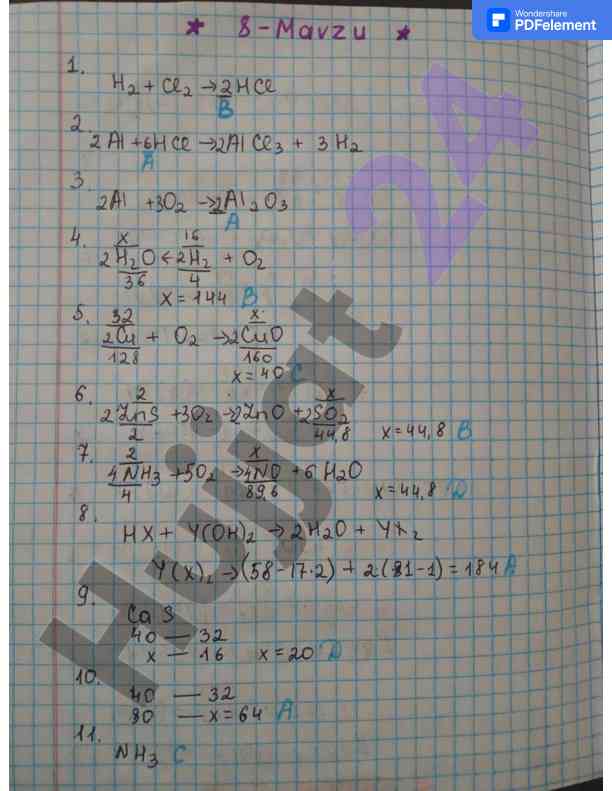 Wondershare
PDFelement
★ 8-Mavzu ★
1.
H₂ + Cl₂ → 2HCl
B
2.
2Al + 6HCl → 2AlCl₃ + 3H₂
A
3.
2Al + 3O₂ → 2Al₂O₃
A
4.
x 16
2H₂O ← 2H₂ + O₂
36 4
x = 144 B
5.
32 x
2Cu + O₂ → 2CuO
128 160
x = 40 C
6.
2 x
2ZnS + 3O₂ → 2ZnO + 2SO₂
2 44,8 x = 44,8 B
7.
2 x
4NH₃ + 5O₂ → 4NO + 6H₂O
4 89,6 x = 44,8 D
8.
HX + Y(OH)₂ → 2H₂O + YX₂
Y(X)₂ → (58-17·2) + 2(81-1) = 184 A
9.
CaS
40 — 32
x — 16 x = 20 D
10.
40 — 32
80 — x = 64 A
11.
NH₃ C
Hujjat 24